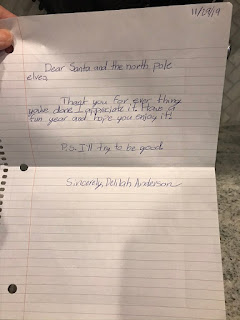 11/29/19
Dear Santa and the north pole
elves,
Thank you for ever thing
you've done I appriciate it. Have a
fun year and hope you enjoy it!
P.s. I'll try to be good.
Sincerely, Delilah Anderson